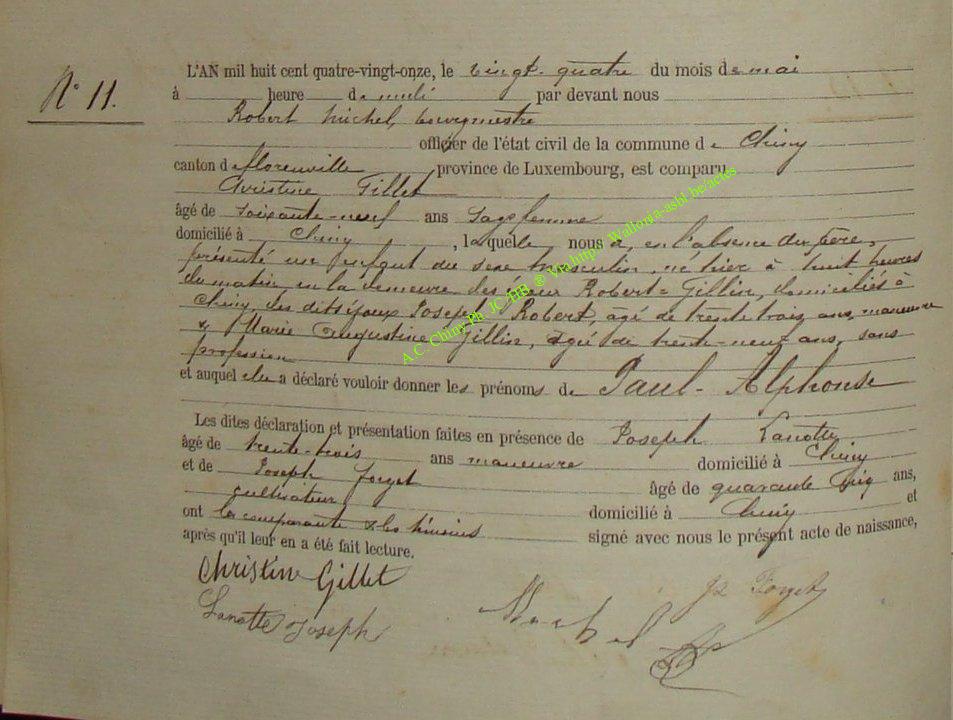 N° 11.
L'AN mil huit cent quatre-vingt-onze, le vingt-quatre du mois de mai
à heure de midi par devant nous
Robert Michel, bourgmestre
officier de l'état civil de la commune de Chiny
canton de florenville province de Luxembourg, est comparu
Christine Gillet
âgé de soixante-neuf ans Sagefemme
domicilié à Chiny, laquelle nous a, en l'absence du père,
présenté un enfant du sexe masculin, né hier à huit heures
du matin, en la demeure des époux Robert-Gillin, domiciliés à
Chiny, des dits époux Joseph Robert, agé de trente trois ans, manœuvre
& Marie Augustine Gillin, agée de trente-neuf ans, sans
profession
et auquel elle a déclaré vouloir donner les prénoms de Paul-Alphonse
Les dites déclaration et présentation faites en présence de Joseph Lanotte
âgé de trente-trois ans manœuvre domicilié à Chiny
et de Joseph Forget âgé de quarante cinq ans,
cultivateur domicilié à Chiny et
ont la comparante & les témoins signé avec nous le présent acte de naissance,
après qu'il leur en a été fait lecture.
Christine Gillet
Jh Forget
Lanotte Joseph
Michel
A.C. Chiny Ph. JC/HB © Vrahitpol Wallonia-asbl.be/actes